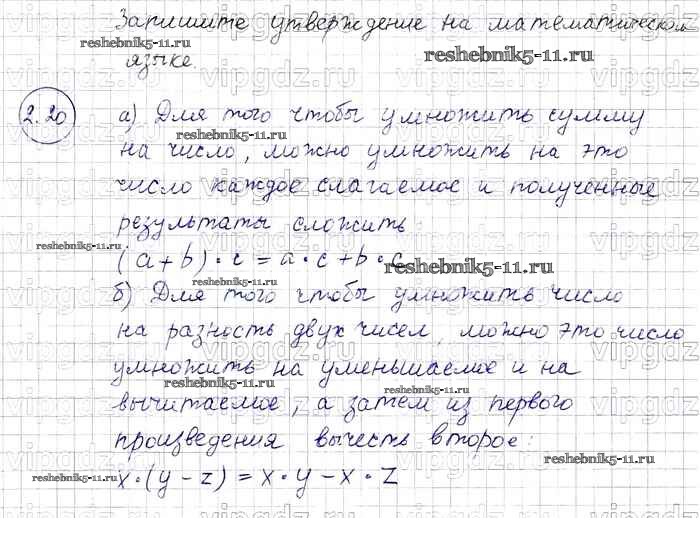 Запишите утверждение на математическом
reshebnik5-11.ru
reshebnik5-11.ru
языке.
2.20
а) Для того чтобы умножить сумму
reshebnik5-11.ru
на число, можно умножить на это
число каждое слагаемое и полученные
результаты сложить:
reshebnik5-11.ru
(a+b)·c=a·c+b·c
reshebnik5-11.ru
б) Для того чтобы умножить число
на разность двух чисел, можно это число
умножить на уменьшаемое и на
reshebnik5-11.ru
reshebnik5-11.ru
вычитаемое, а затем из первого
произведения вычесть второе:
reshebnik5-11.ru
reshebnik5-11.ru
x·(y-z)=x·y-x·z
vipgdz